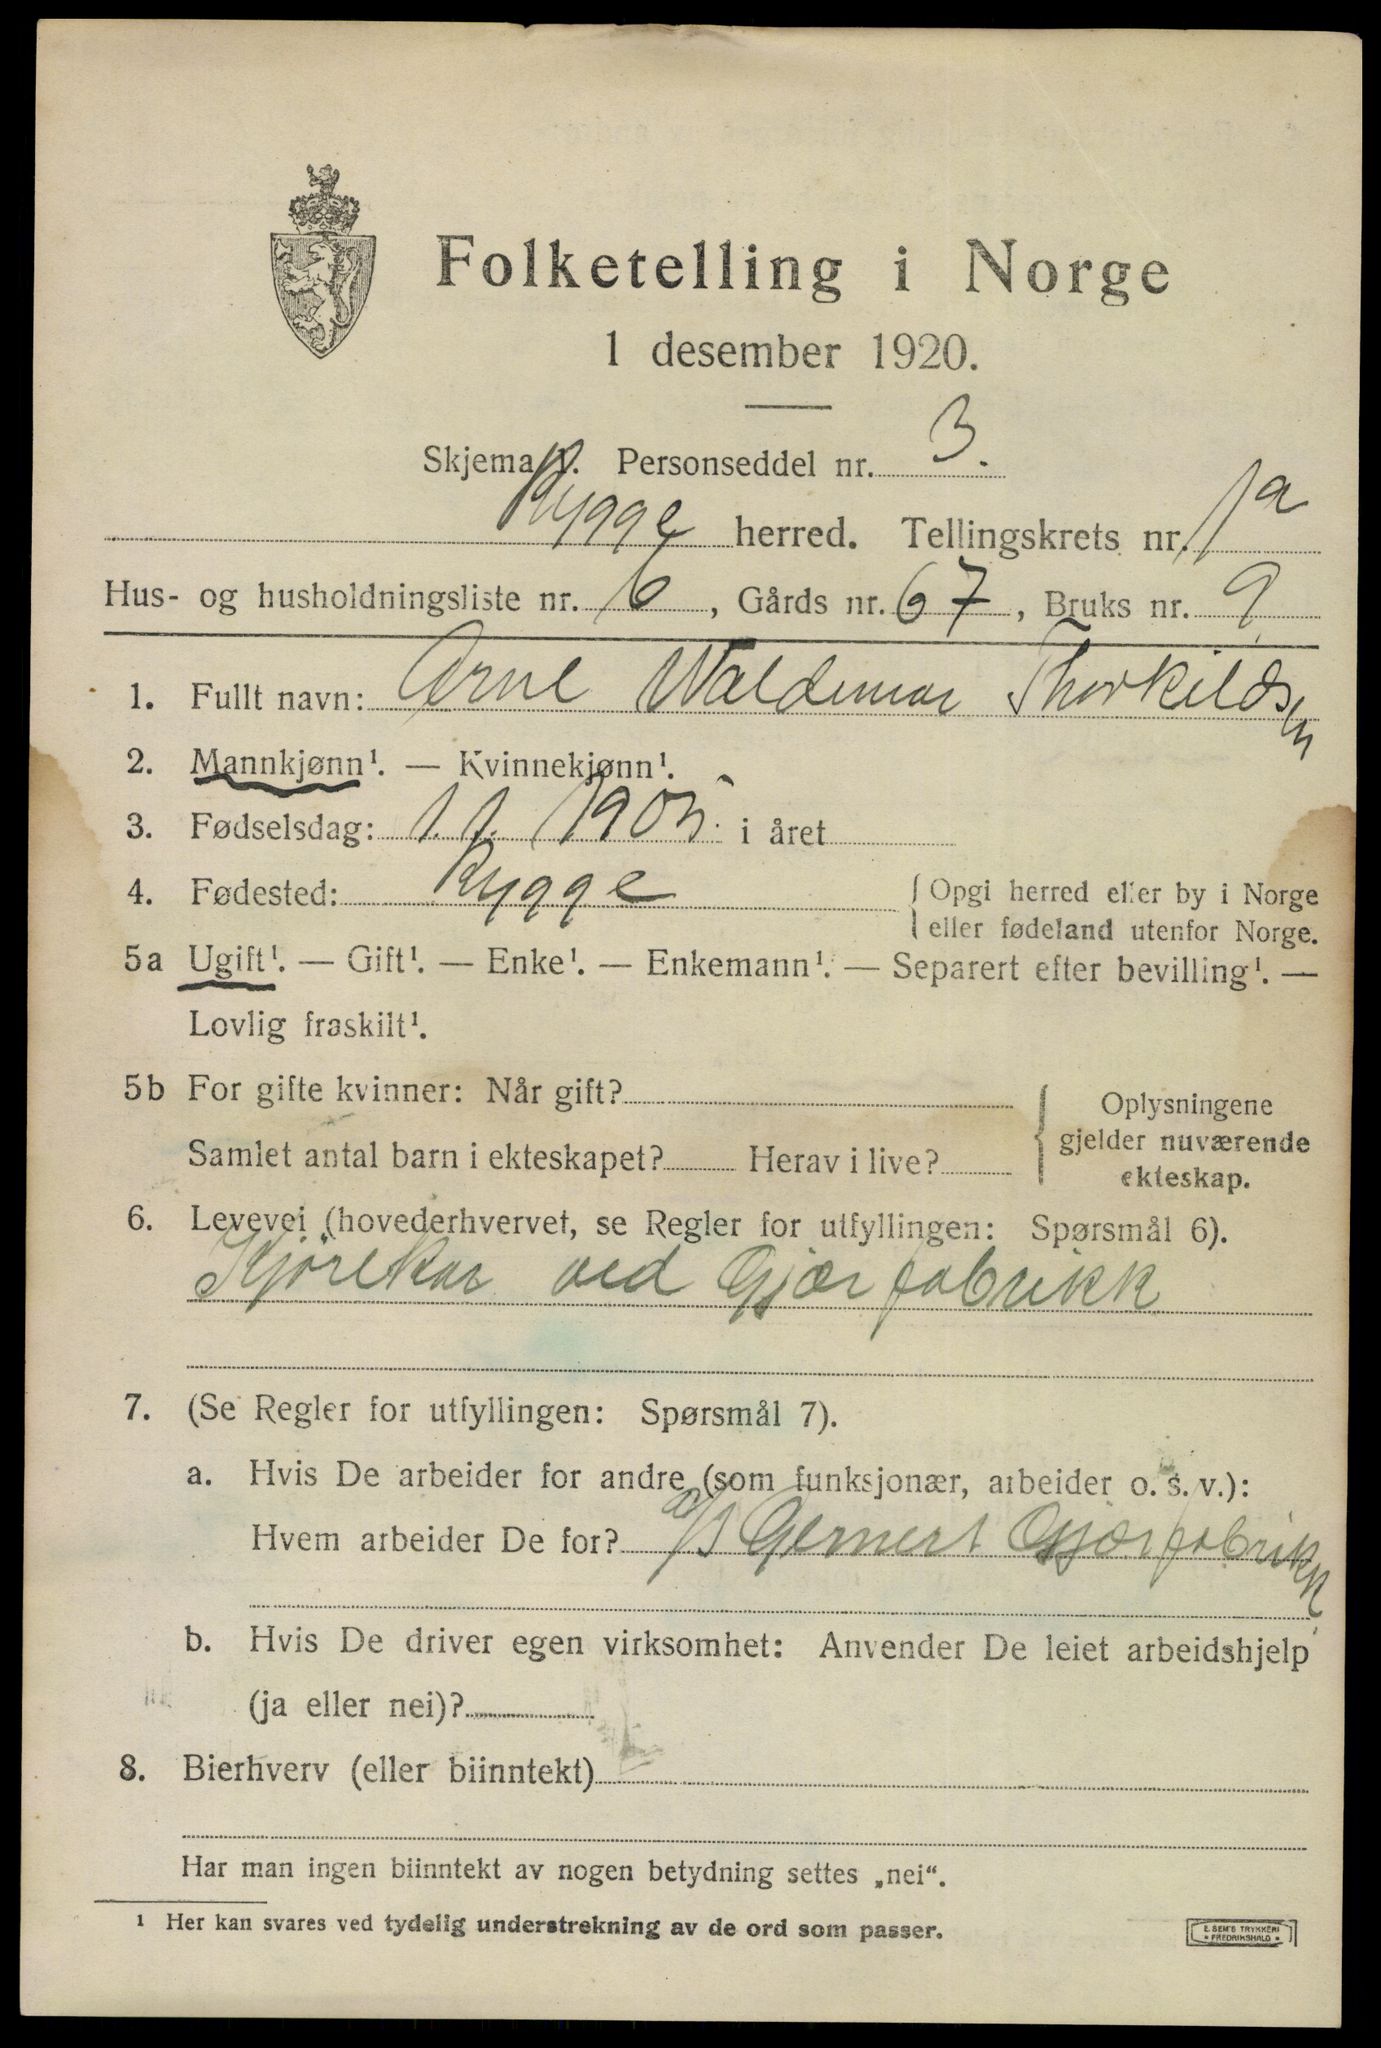 Folketelling i Norge
1 desember 1920.
Skjema Personseddel nr. 3.
Rygge herred. Tellingskrets nr. 1a
Hus- og husholdningsliste nr. 6, Gårds nr. 67, Bruks nr. 9
1. Fullt navn: Arne Waldemar Thorkildsen
2. Mannkjønn¹. — Kvinnekjønn¹.
3. Fødselsdag: 1.1. 1905. i året
4. Fødested: Rygge {Opgi herred eller by i Norge
eller fødeland utenfor Norge.
5a Ugift¹. — Gift¹. — Enke¹. — Enkemann¹. — Separert efter bevilling¹. —
Lovlig fraskilt¹.
5b For gifte kvinner: Når gift?
Samlet antal barn i ekteskapet? Herav i live?
{Oplysningene
gjelder nuværende
ekteskap.
6. Levevei (hovederhvervet, se Regler for utfyllingen: Spørsmål 6).
Kjørekar ved Gjærfabrikk
7. (Se Regler for utfyllingen: Spørsmål 7).
a. Hvis De arbeider for andre (som funksjonær, arbeider o. s. v.):
Hvem arbeider De for? a/s Gernert Gjærfabrikk
b. Hvis De driver egen virksomhet: Anvender De leiet arbeidshjelp
(ja eller nei)?
8. Bierhverv (eller biinntekt)
Har man ingen biinntekt av nogen betydning settes „nei“.
¹ Her kan svares ved tydelig understrekning av de ord som passer.
E. SEM'S TRYKKERI
• FREDRIKSHALD •